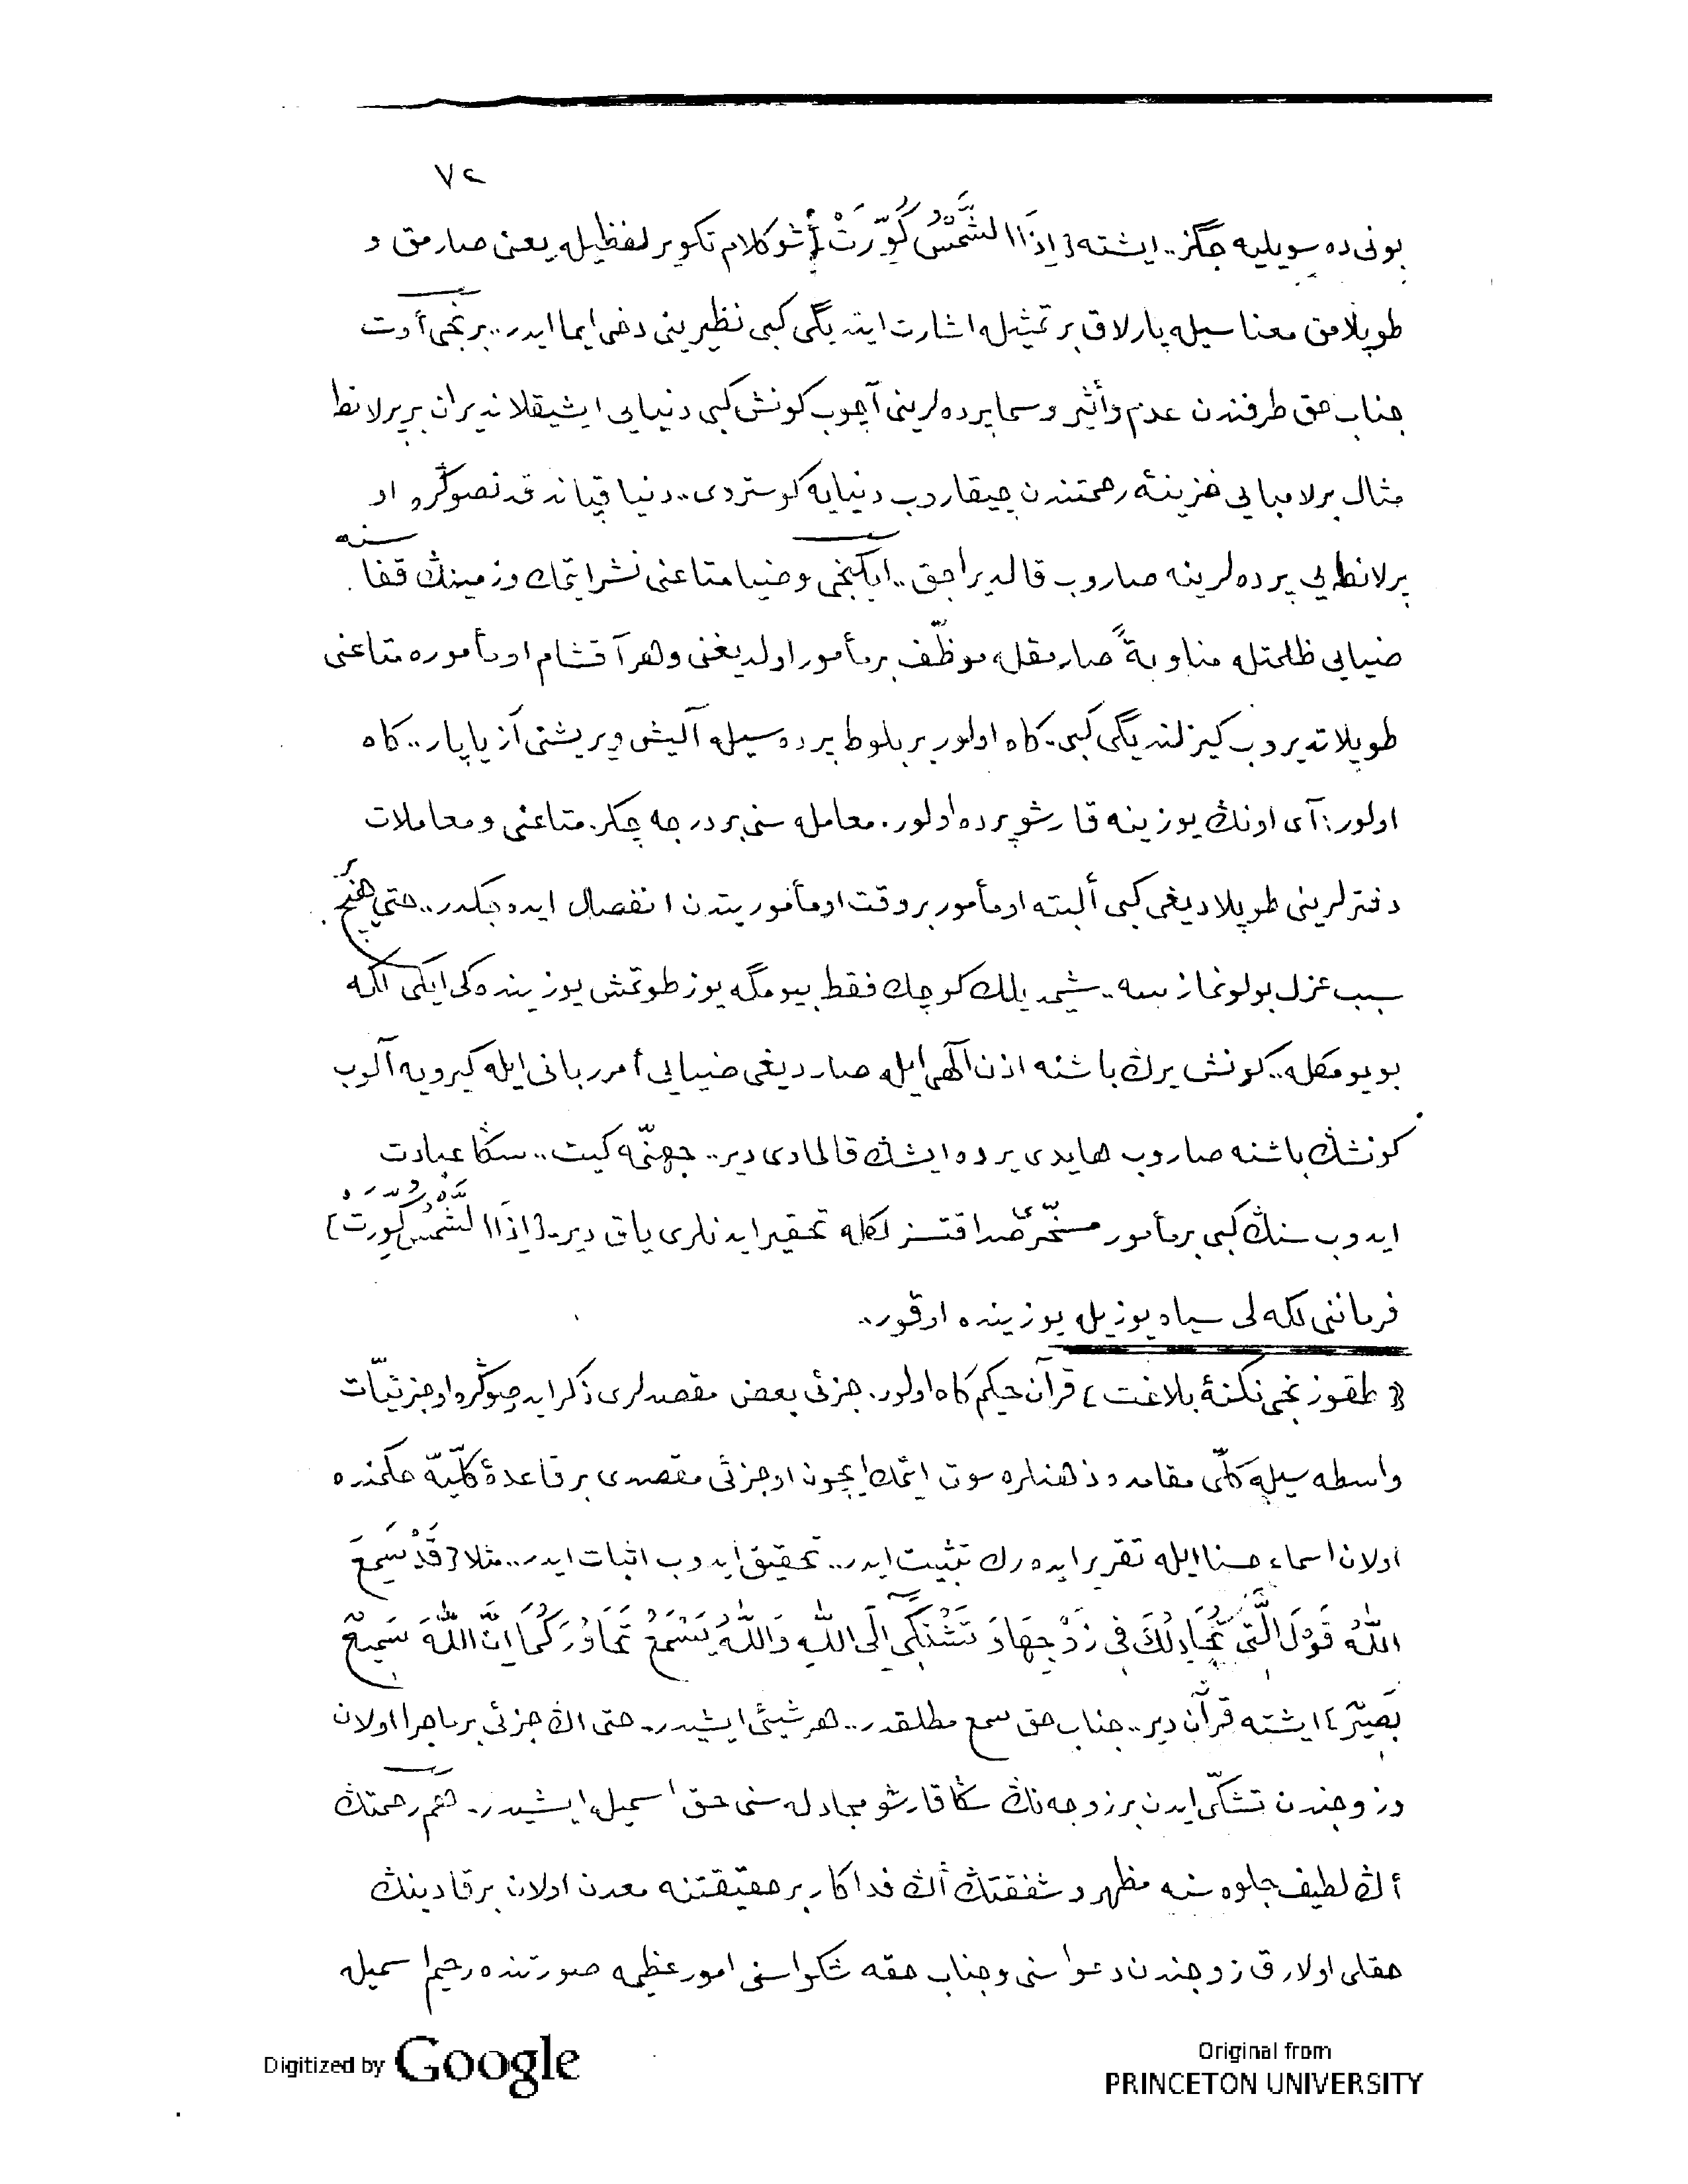 ٧٢
بونى ده سويليه جگز.. ايشته {اِذَا الشَّمْسُ كُوِّرَتْ} شو كلام تكوير لفظيله يعنى صارمق و
طوپلامق معناسيله پارلاق بر تمثيله اشارت ايتديگى كبى نظيرينى دخى ايما ايدر.. برنجى أوت
جناب حق طرفندن عدم وأثير وسما پرده لرينى آچوب كونش كبى دنيايى ايشيقلانديران بر پرلانطا
مثال بر لامبايى خزينۀ رحمتندن چيقاروب دنيايه كوستردى.. دنيا قپاندقدنصوڭره او
پرلانطايى پرده لرينه صاروب قالديراجق.. ايكنجى وضيا متاعنى نشر ايتمك وزمينڭ قفاسنه
ضيايى ظلمتله مناوبةً صارمقله موظّف بر مأمور اولديغنى وهر آقشام او مأموره متاعنى
طوپلاتديروب كيزلنديگى كبى. كاه اولور بر بلوط پرده سيله آليش ويريشنى آز ياپار.. كاه
اولور: آى اونڭ يوزينه قارشو پرده اولور. معامله سنى بر درجه چكر. متاعنى ومعاملات
دفترلرينى طوپلاديغى كبى ألبته او مأمور بر وقت او مأموريتدن انفصال ايده جكدر.. حتى هيچ بر
سبب عزل بولونمازسه.. شيمديلك كوچك فقط بيومگه يوز طوتمش يوزينده كى ايكى لكه
بويومكله.. كونش يرڭ باشنه اذن الٓهى ايله صارديغى ضيايى أمر ربانى ايله كيرويه آلوب
كونشڭ باشنه صاروب هايدى يرده ايشڭ قالمادى دير.. جهنّمه كيت.. سڭا عبادت
ايدوب سنڭ كبى بر مأمور مسخّرى صداقتسزلكله تحقير ايدنلرى ياق دير. {اِذَا الشَّمْسُ كُوِّرَتْ}
فرماننى لكه لى سياه يوزيله يوزينده اوقور..
{طقوزنجى نكتۀ بلاغت} قرآن حكيم كاه اولور. جزئى بعض مقصدلرى ذكر ايدر صوڭره او جزئيّات
واسطه سيله كلّى مقامده ذهنلره سوق ايتمك ايچون او جزئى مقصدى بر قاعدۀ كلّيّه حكمنده
اولان اسماء حسنا ايله تقرير ايده رك تثبيت ايدر.. تحقيق ايدوب اثبات ايدر.. مثلا {قَدْ سَمِعَ
اللّٰهُ قَوْلَ الَّتِى تُجَادِلُكَ فِى زَوْجِهَا وَ تَشْتَكِٓى اِلَى اللّٰهِ وَاللّٰهُ يَسْمَعُ تَحَاوُرَكُمَا اِنَّ اللّٰهَ سَمِيعٌ
بَصِيرٌ} ايشته قرآن دير.. جناب حق سمع مطلقدر.. هر شيئى ايشيدر. حتى اڭ جزئى بر ماجرا اولان
و زوجندن تشكّى ايدن بر زوجه نڭ سڭا قارشو مجادله سنى حق اسميله ايشيدر. هم رحمتڭ
أڭ لطيف جلوه سنه مظهر و شفقتڭ أڭ فداكار بر حقيقتنه معدن اولان بر قادينڭ
حقلى اولارق زوجندن دعواسنى وجناب حقه شكواسنى امور عظيمه صورتنده رحيم اسميله
Digitized by Google
Original from
PRINCETON UNIVERSITY